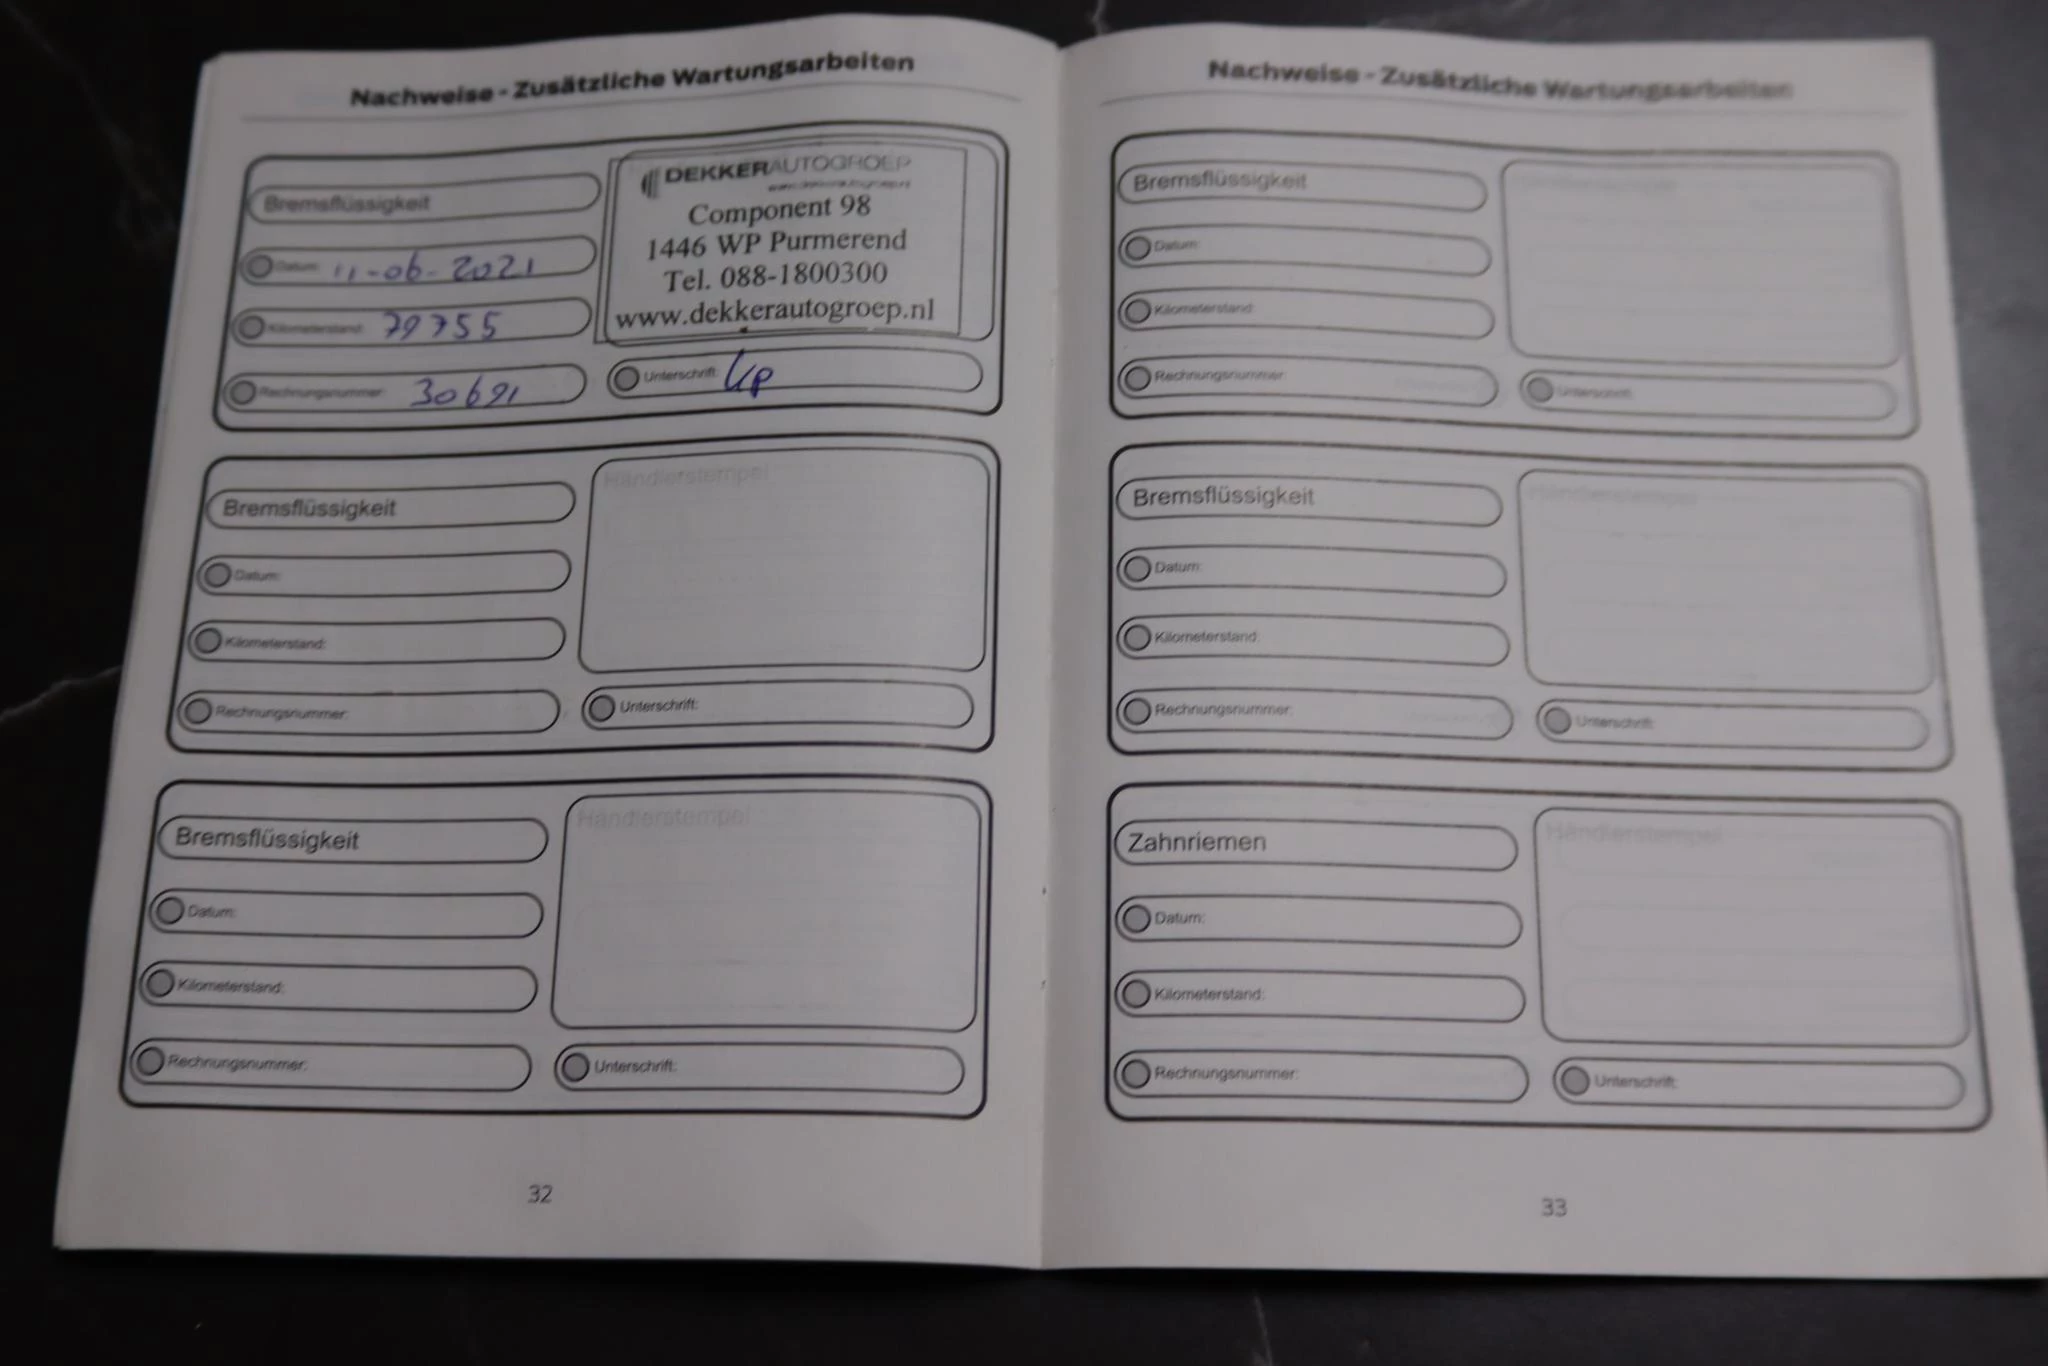 Nachweise - Zusätzliche Wartungsarbeiten
Bremsflüssigkeit
Datum: 11-06-2021
Kilometerstand: 79755
Rechnungsnummer: 30691
DEKKERAUTOGROEP
www.dekkerautogroep.nl
Component 98
1446 WP Purmerend
Tel. 088-1800300
www.dekkerautogroep.nl
Unterschrift:
Bremsflüssigkeit
Datum:
Kilometerstand:
Rechnungsnummer:
Händlerstempel
Unterschrift:
Bremsflüssigkeit
Datum:
Kilometerstand:
Rechnungsnummer:
Händlerstempel
Unterschrift:
32
Nachweise - Zusätzliche Wartungsarbeiten
Bremsflüssigkeit
Datum:
Kilometerstand:
Rechnungsnummer:
Händlerstempel
Unterschrift:
Bremsflüssigkeit
Datum:
Kilometerstand:
Rechnungsnummer:
Händlerstempel
Unterschrift:
Zahnriemen
Datum:
Kilometerstand:
Rechnungsnummer:
Händlerstempel
Unterschrift:
33